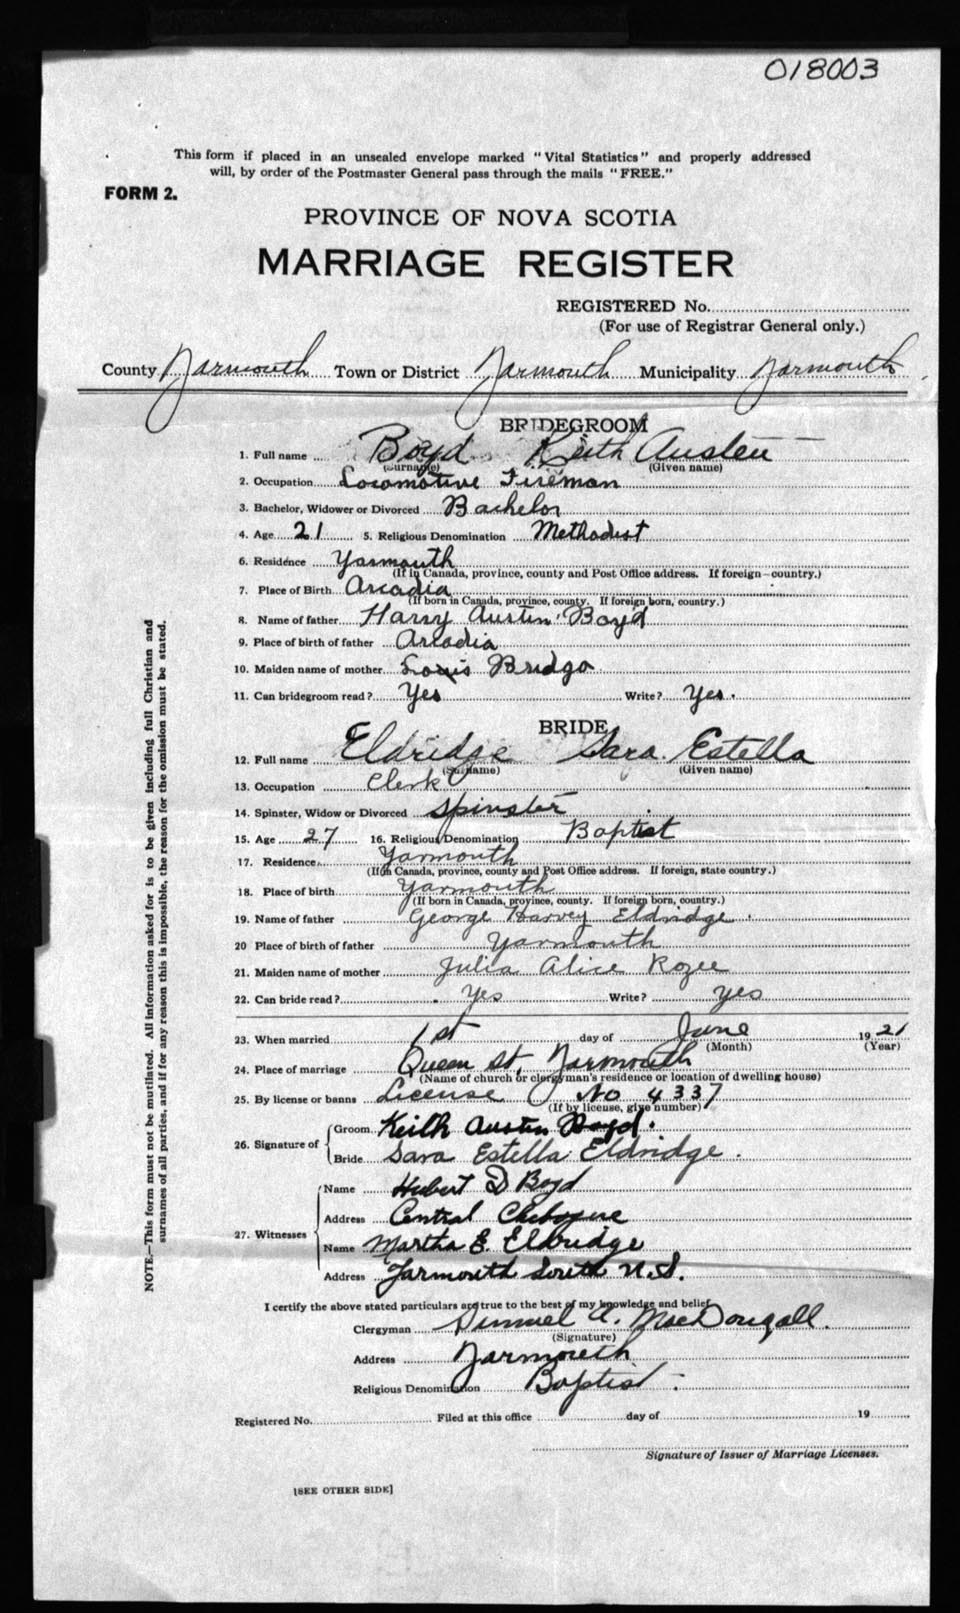 018003
This form if placed in an unsealed envelope marked "Vital Statistics" and properly addressed
will, by order of the Postmaster General pass through the mails "FREE."
FORM 2.
PROVINCE OF NOVA SCOTIA
MARRIAGE REGISTER
REGISTERED No.
(For use of Registrar General only.)
County Yarmouth Town or District Yarmouth Municipality Yarmouth
BRIDEGROOM
1. Full name Boyd Keith Austen
(Surname) (Given name)
2. Occupation Locomotive Fireman
3. Bachelor, Widower or Divorced Bachelor
4. Age 21 5. Religious Denomination Methodist
6. Residence Yarmouth
(If in Canada, province, county and Post Office address. If foreign—country.)
7. Place of Birth Arcadia
(If born in Canada, province, county. If foreign born, country.)
8. Name of father Harry Austin Boyd
9. Place of birth of father Arcadia
10. Maiden name of mother Bridgo
11. Can bridegroom read? Yes Write? Yes.
BRIDE
12. Full name Eldridge Sara Estella
(Surname) (Given name)
13. Occupation Clerk
14. Spinster, Widow or Divorced Spinster
15. Age 27 16. Religious Denomination Baptist
17. Residence Yarmouth
(If in Canada, province, county and Post Office address. If foreign, state country.)
18. Place of birth Yarmouth
(If born in Canada, province, county. If foreign born, country.)
19. Name of father George Harvey Eldridge.
20 Place of birth of father Yarmouth
21. Maiden name of mother Julia Alice Rozee
22. Can bride read? Yes Write? yes
23. When married 1st day of June 19 21
(Month) (Year)
24. Place of marriage Queen St, Yarmouth
(Name of church or clergyman's residence or location of dwelling house)
25. By license or banns License No 4337
(If by license, give number)
26. Signature of
Groom Keith Austin Boyd.
Bride Sara Estella Eldridge.
27. Witnesses
Name Hubert D Boyd
Address Central Chebogue
Name Martha E. Elbridge
Address Yarmouth South N.S.
I certify the above stated particulars are true to the best of my knowledge and belief
Clergyman A. MacDougall.
(Signature)
Address Yarmouth
Religious Denomination Baptist.
Registered No. Filed at this office day of 19
Signature of Issuer of Marriage Licenses.
[SEE OTHER SIDE]
NOTE.—This form must not be mutilated. All information asked for is to be given including full Christian and
surnames of all parties, and if for any reason this is impossible, the reason for the omission must be stated.